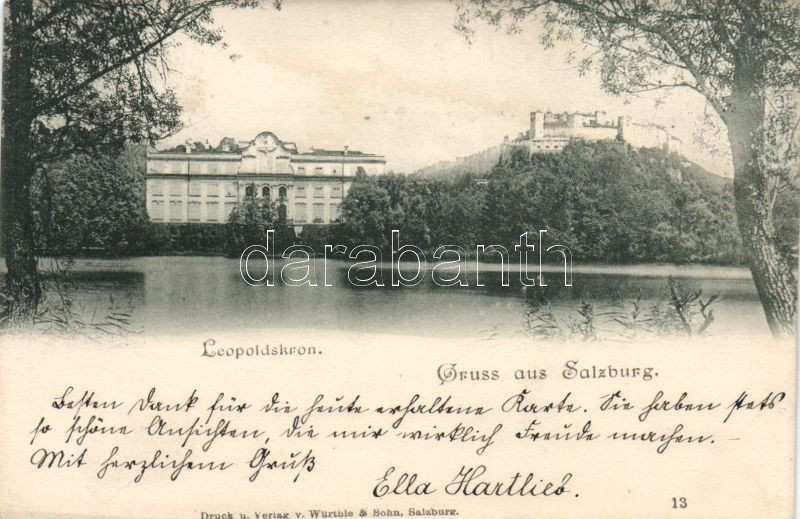 darabanth
Leopoldskron.
Gruss aus Salzburg.
Besten Dank für die heute erhaltene Karte. Sie haben stets
so schöne Ansichten, die mir wirklich Freude machen. –
Mit herzlichem Gruß
Ella Hartlieb.
13
Druck u. Verlag v. Würthle & Sohn, Salzburg.